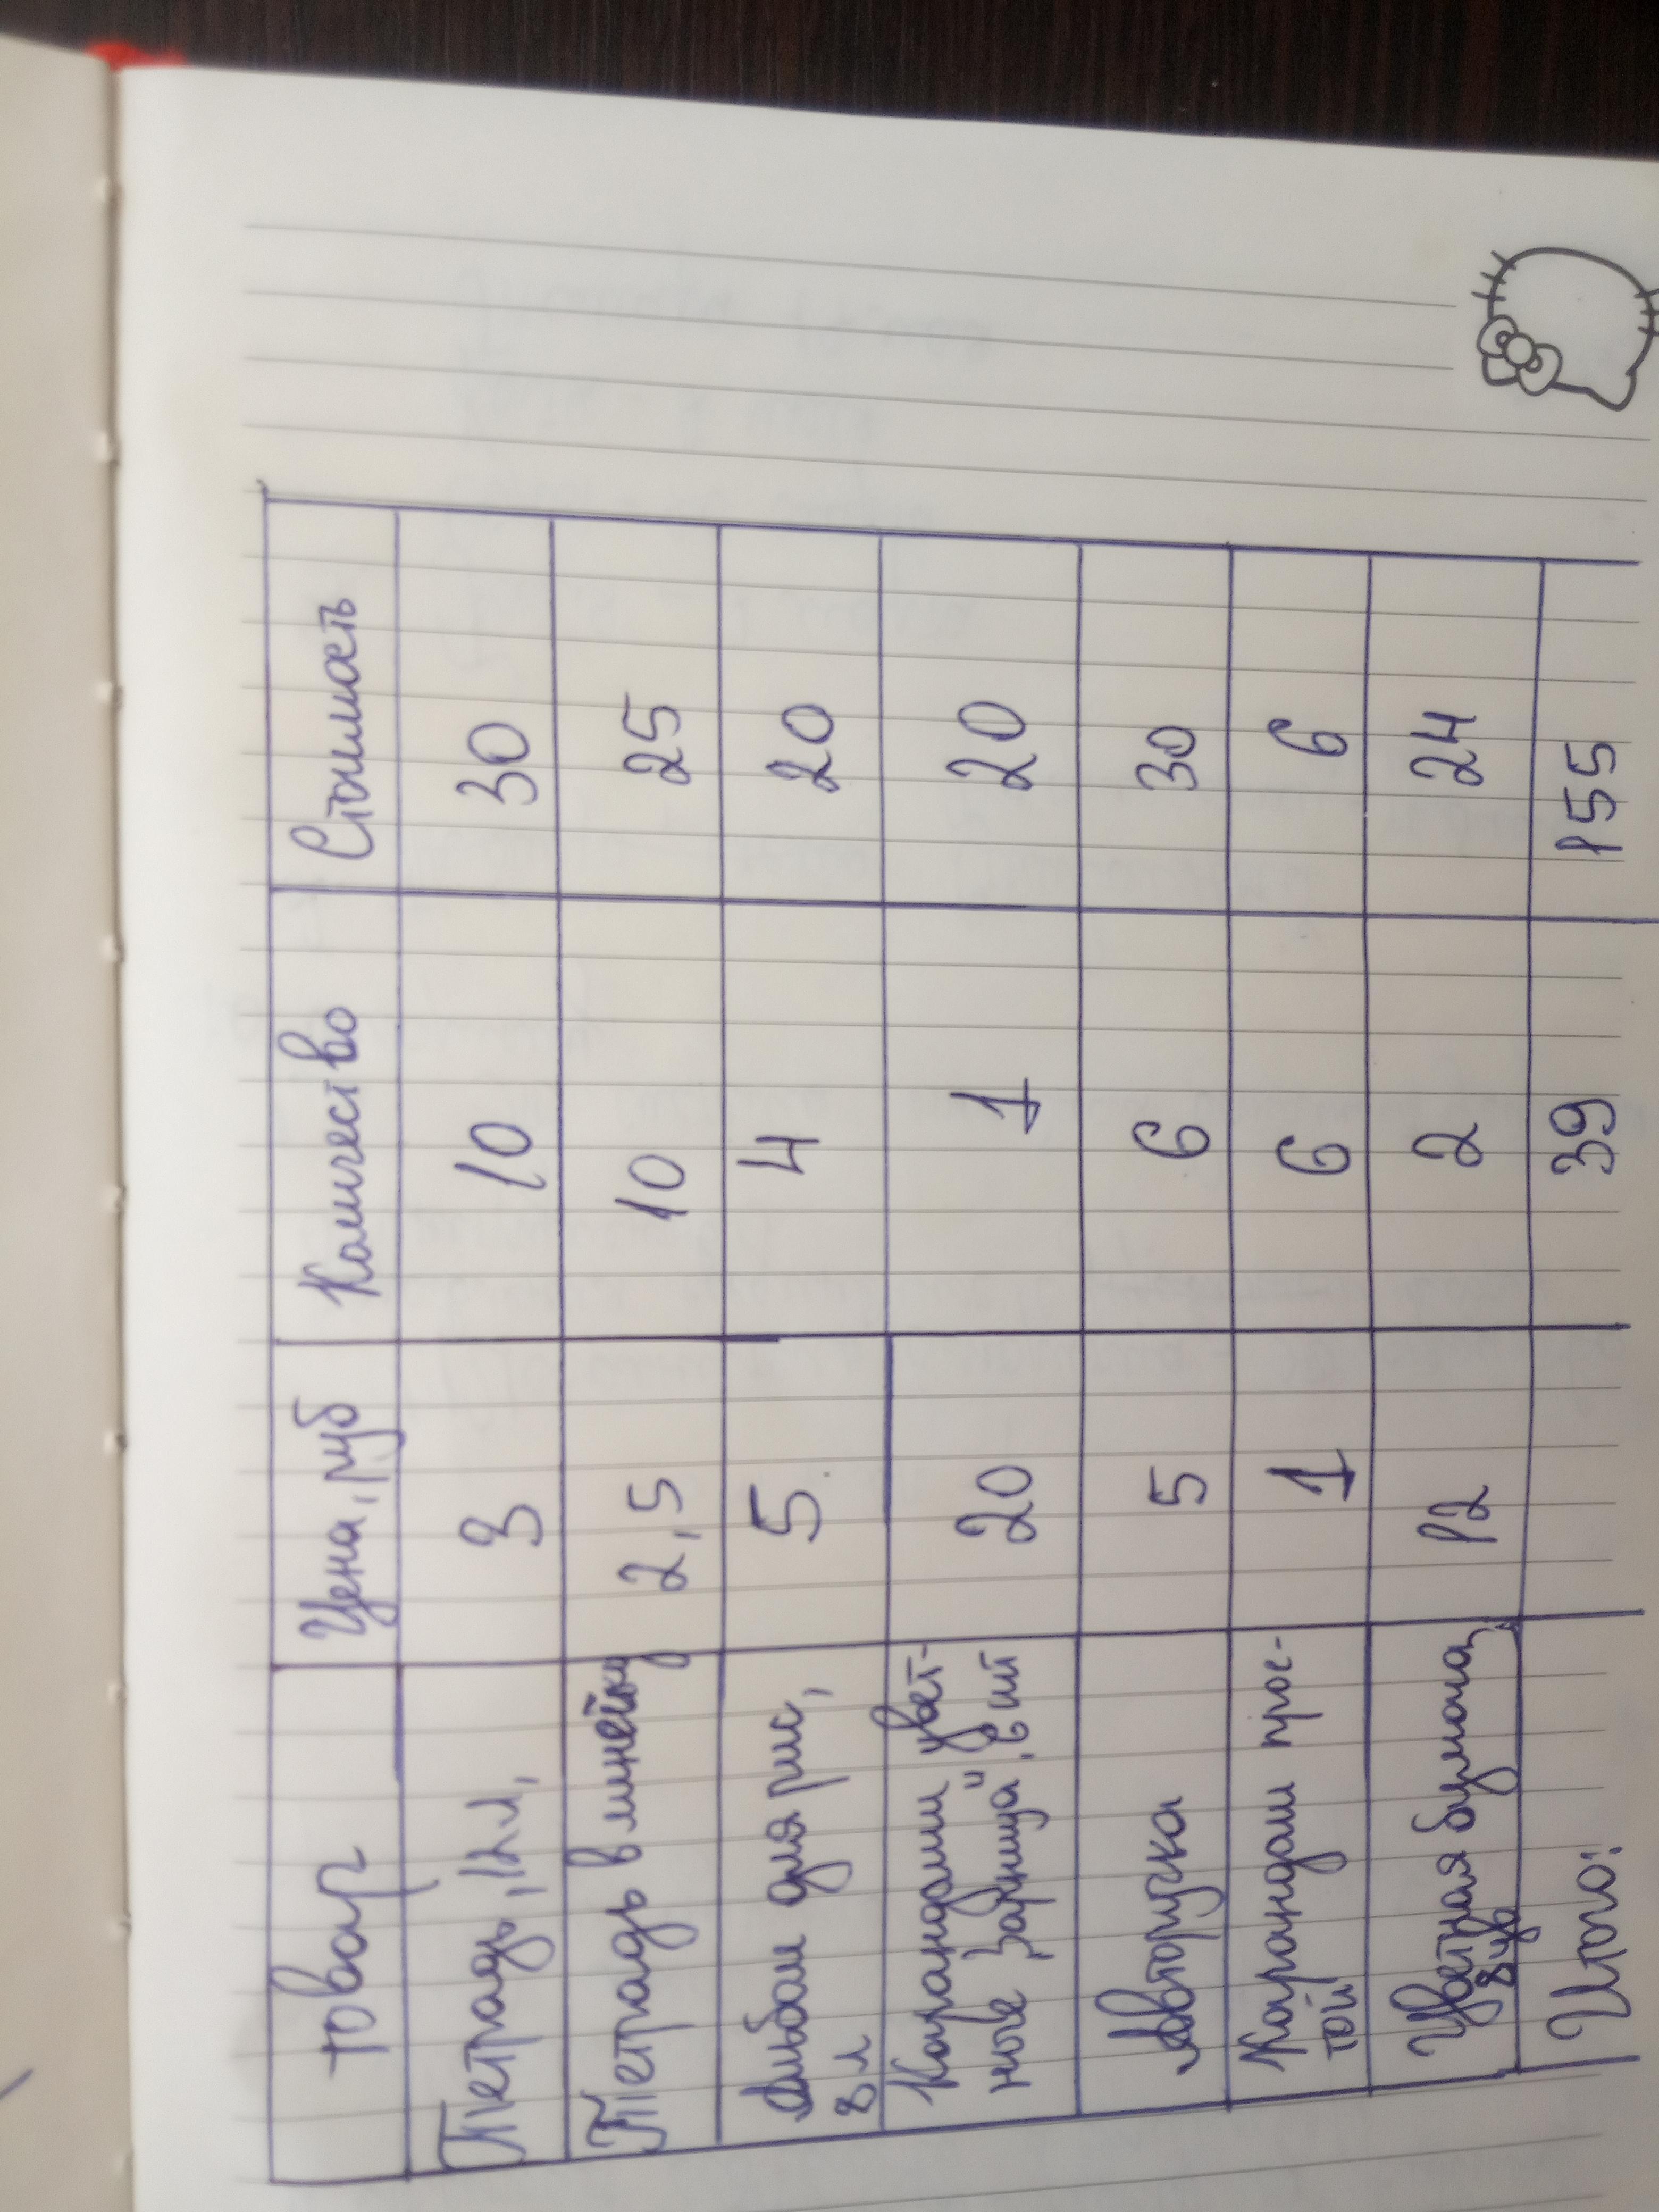 товар Цена, руб Количество Стоимость
Тетрадь, 12л, 3 10 30
Тетрадь в линейку 2,5 10 25
Альбом для рис, 5 4 20
8 л
Карандаши цвет- 20 1 20
ные "Зарница", 6 шт
Авторучка 5 6 30
Карандаш прос- 1 6 6
той
Цветная бумага, 12 2 24
8 цв
Итого: 39 155